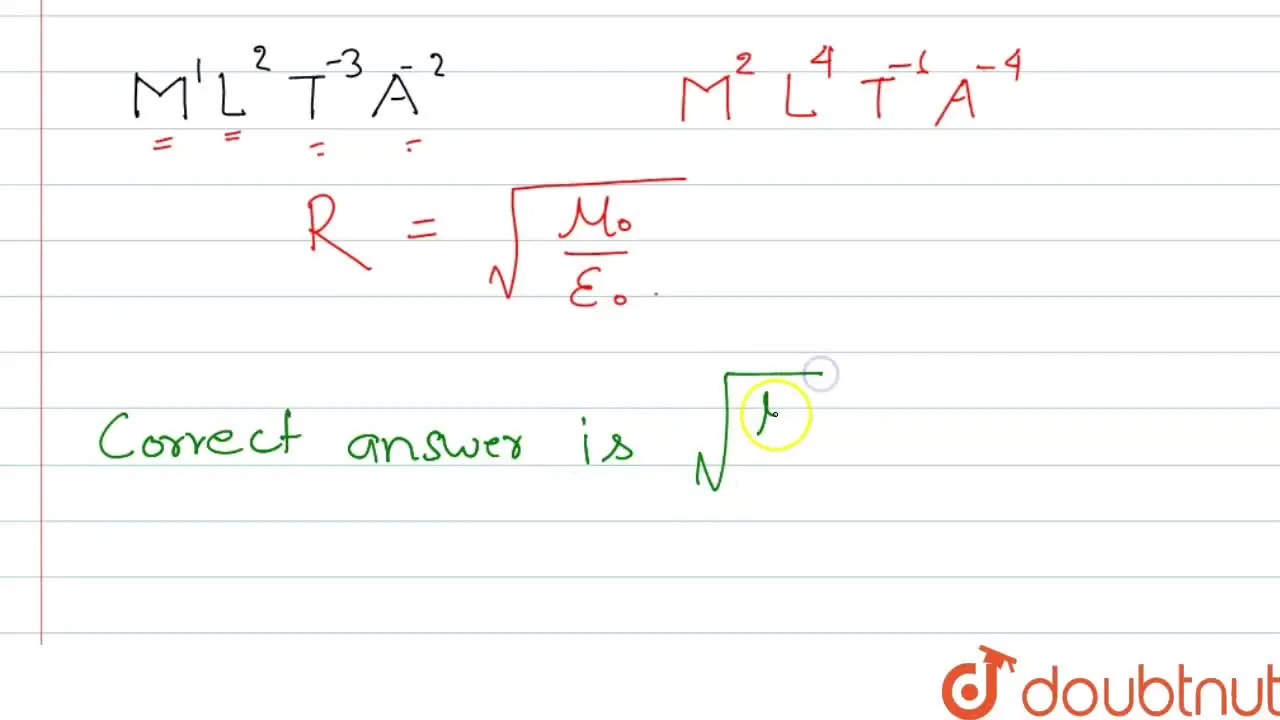 M¹L²T⁻³A⁻² M²L⁴T⁻⁶A⁻⁴
R = √(μ₀/ε₀)
Correct answer is √μ
doubtnut